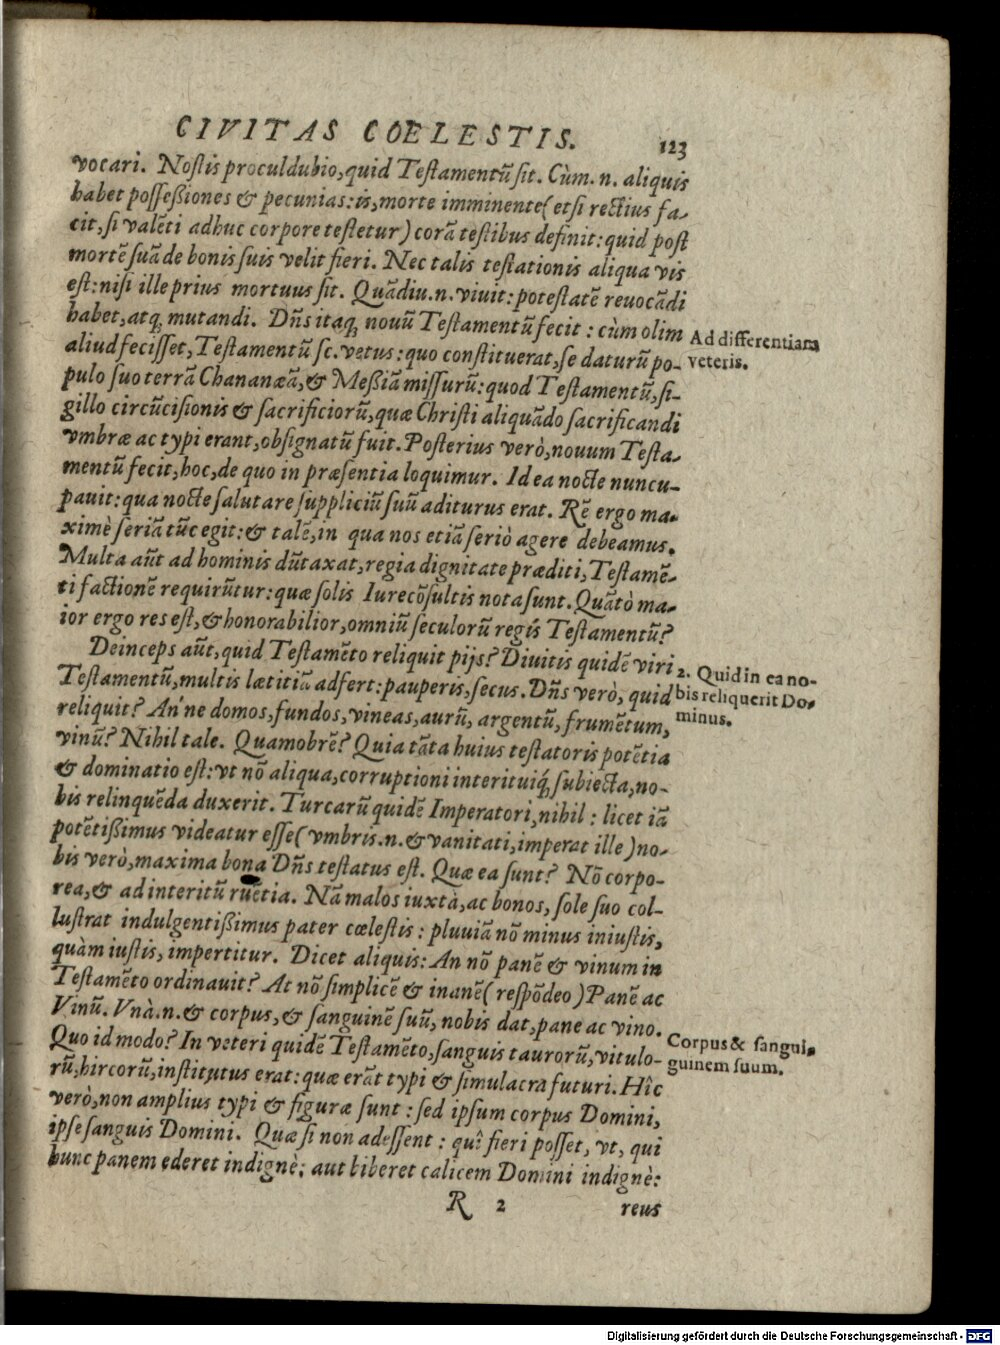 CIVITAS COELESTIS. 123
vocari. Nostis proculdubio, quid Testamentũ sit. Cùm. n. aliquis
habet possessiones & pecunias: is, morte imminente (etsi rectius fa-
cit, si valẽti adhuc corpore testetur) corã testibus definit: quid post
mortẽ suã de bonis suis velit fieri. Nec talis testationis aliqua vis
est: nisi ille prius mortuus sit. Quãdiu. n. viuit: potestatẽ reuocãdi
habet, atq; mutandi. Dñs itaq; nouũ Testamentũ fecit: cùm olim
Ad differentiam
aliud fecisset, Testamentũ sc. vetus: quo constituerat, se daturũ po-
veteris.
pulo suo terrã Chananæã, & Meßiã missurũ: quod Testamentũ, si-
gillo circũcisionis & sacrificiorũ, quæ Christi aliquãdo sacrificandi
vmbræ ac typi erant, obsignatũ fuit. Posterius verò, nouum Testa-
mentũ fecit, hoc, de quo in præsentia loquimur. Id ea nocte nuncu-
pauit: qua nocte salutare suppliciũ suũ aditurus erat. Rẽ ergo ma-
ximè seriã tũc egit: & talẽ, in qua nos etiã seriò agere debeamus.
Multa aũt ad hominis dũtaxat, regia dignitate præditi, Testamẽ-
ti factionẽ requirũtur: quæ solis Iurecõsultis nota sunt. Quãtò ma-
ior ergo res est, & honorabilior, omniũ seculorũ regis Testamentũ?
Deinceps aũt, quid Testamẽto reliquit pijs? Diuitis quidẽ viri
2. Quid in ea no-
Testamentũ, multis lætitiã adfert: pauperis, secus. Dñs verò, quid
bis reliquerit Do-
reliquit? An'ne domos, fundos, vineas, aurũ, argentũ, frumẽtum,
minus.
vinũ? Nihil tale. Quamobrẽ? Quia tãta huius testatoris potẽtia
& dominatio est: vt nõ aliqua, corruptioni interituiq́; subiecta, no-
bis relinquẽda duxerit. Turcarũ quidẽ Imperatori, nihil: licet iã
potẽtißimus videatur esse (vmbris. n. & vanitati, imperat ille) no-
bis verò, maxima bona Dñs testatus est. Quæ ea sunt? Nõ corpo-
rea, & ad interitũ ruẽtia. Nã malos iuxtà, ac bonos, sole suo col-
lustrat indulgentißimus pater cœlestis: pluuiã nõ minus iniustis,
quàm iustis, impertitur. Dicet aliquis: An nõ panẽ & vinum in
Testamẽto ordinauit? At nõ simplicẽ & inanẽ (respõdeo) Panẽ ac
Vinũ. Vnà. n. & corpus, & sanguinẽ suũ, nobis dat, pane ac vino.
Corpus & sangui-
Quo id modo? In veteri quidẽ Testamẽto, sanguis taurorũ, vitulo-
guinem suum.
rũ, hircorũ, institutus erat: quæ erãt typi & simulacra futuri. Hîc
verò, non amplius typi & figuræ sunt: sed ipsum corpus Domini,
ipse sanguis Domini. Quæ si non adessent: quî fieri posset, vt, qui
hunc panem ederet indignè: aut biberet calicem Domini indignè:
R 2 reus
Digitalisierung gefördert durch die Deutsche Forschungsgemeinschaft - DFG